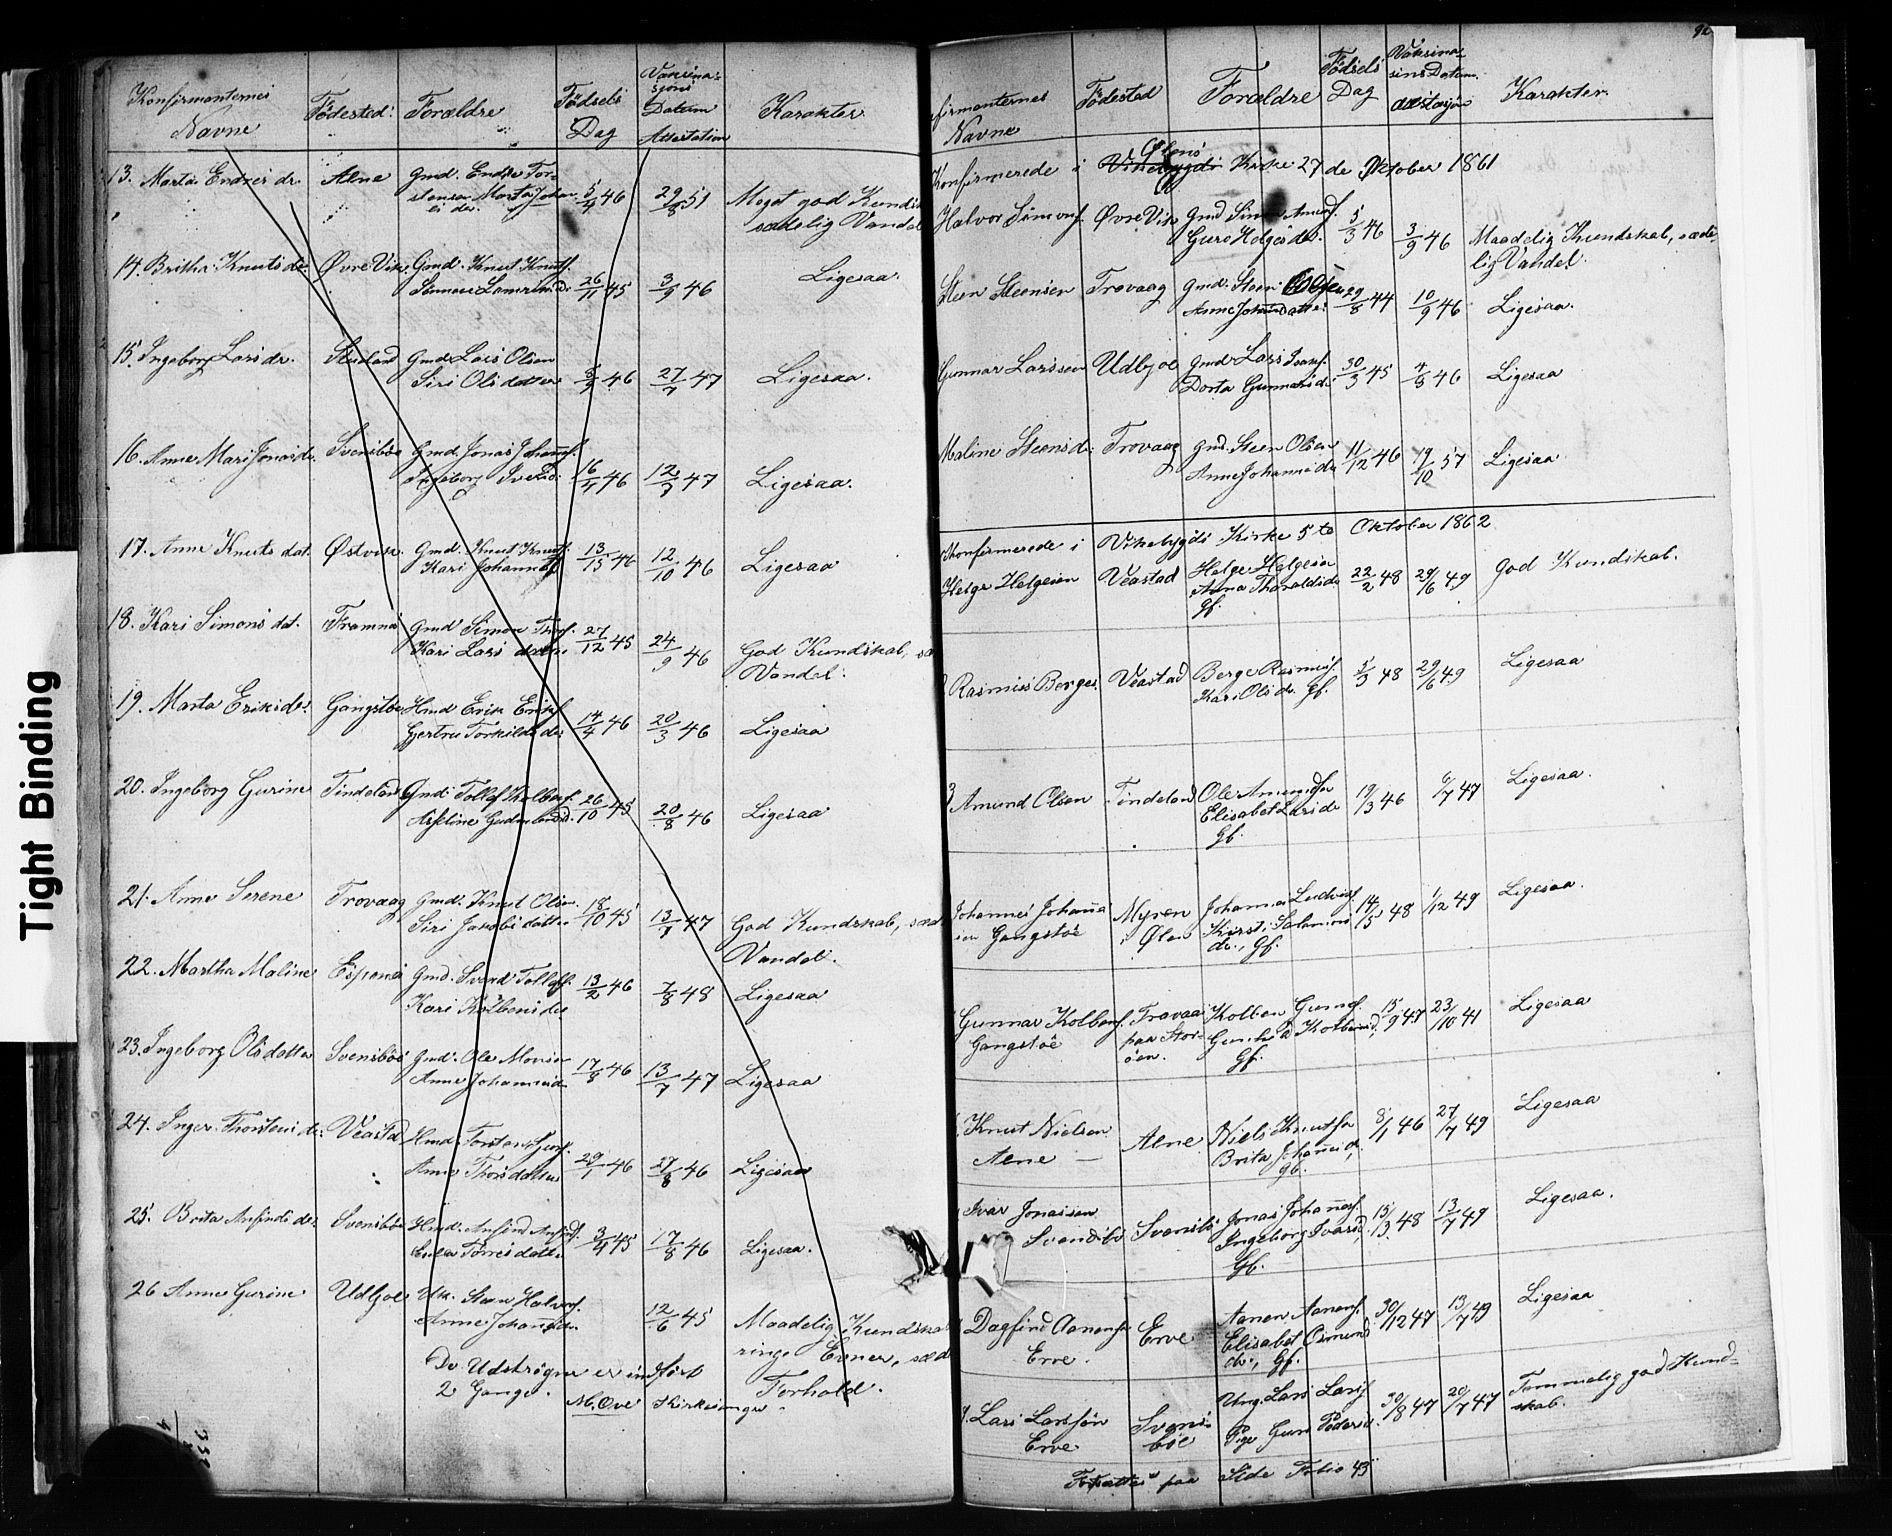 Tight Binding
Konfirmanternes Navne
Fødested:
Forældre
Fødsels Dag
Vaksinasjons Datum Attestation
Karakter
13. Marta Endres dr. Alne Gmd. Endre Torstensen 5/4 46 29/8 51 Meget god Kundsk
sædelig Vandel
14. Britha Knuts dr. Øvre Vik Gmd. Knut Knuts. 26/11 45 3/9 46 Ligesaa.
15. Ingeborg Lars dr. Gmd. Lars Olsen
Siri Ols datter 46 27/7 47 Ligesaa.
16. Anne Mari Jonas dr. Svensbøe Gmd. Jonas Johans.
Ingeborg Ivers d. 16/4 46 12/7 47 Ligesaa.
17. Anne Knuts dat. Østvik Gmd. Knut Knuts.
Kari Johannes 46 12/10 46 Ligesaa
18. Kari Simons dat. Framnes Gmd Simon
Kari Lars datter 27/12 45 24/9 46 God Kundskab,
Vandel.
19. Marta Eriks dr. Gangstøe Hmd Erik Eriks.
Gjertru Torkilds dr 14/4 46 20/3 46 Ligesaa
20. Ingeborg Gurine Tindeland Gmd. Tollef Kolbens. 26/10 45 20/8 46 Ligesaa
21. Anne Serene Trovaag Gmd. Knut Olsen
Siri Jakobs datter 18/10 45 13/7 47 God Kundskab, sæd
Vandel.
22. Martha Maline Espenes Gmd. Svend Tollefs.
Kari Kolbens dr 13/2 46 7/8 48 Ligesaa
23. Ingeborg Ols datter Svensbøe Gmd. Ole Monsen
Anne Johannesd 17/3 46 13/7 47 Ligesaa
24. Inger Thorstens dr. Veastad Hmd. Torsten
Anne Thors datter 29/1 46 27/8 46 Ligesaa
25. Brita Anfinds dr. Svensbøe Hmd. Anfind Anfinds.
Torres datter 3/4 45 17/8 46 Ligesaa.
26 Anne Gurine Udbjoe Sten Halvors.
Anne Johannes dr. 12/6 45 Maadelig Kundskab
ringe Evner, sæd
Forhold.
De Udstrøgne er indført
2 Gange.
M. Øve Kirkesanger
firmanternes Navne
Fødested
Forældre
Fødsels Dag
Vaksinasins Datum
Karakter.
Konfirmerede i Ølens Kirke 27 de Oktober 1861
Halvor Simons. Øvre Vik Gmd Simon Amunds.
Guro Helges dr. 5/3 46 3/9 46 Maadelig Kundskab, sædelig Vandel.
Steen Steensen Trovaag Gmd. Steen Olsen
Anne Johannes datter 29/8 44 10/9 46 Ligesaa.
Gunnar Larssen Udbjoe Gmd Lars Ivars.
Dorta Gunnars dr 30/3 45 4/3 46 Ligesaa
Maline Steens dr. Trovaag Gmd. Steen Olsen
Anne Johannes dr 11/12 46 19/10 57 Ligesaa
Konfirmerede i Vikebygds Kirke 5 te Oktober 1862
Helge Helgesen Veastad Helge Helgesen
Anna Tharalds dr
Gf. 22/2 48 29/6 49 God Kundskab.
Rasmus Berges. Veastad Berge Rasmus.
Kari Ols dr. Gf. 5/3 48 29/6 49 Ligesaa
3 Amund Olsen Tindeland Ole Amundsen
Elisabet Lars dr
Gf. 19/3 46 6/7 47 Ligesaa.
Johannes Johannesen Gangstøe Myren i Ølen Johannes Ludvigs.
Kirsti Salamons
dr., Gf. 14/5 48 1/12 49 Ligesaa.
Gunnar Kolbens.
Gangstøe Travaa paa Storøen. Kolben Gunnars.
Kolbensd.
Gf. 15/9 47 23/10 41 Ligesaa
Knut Nielsen
Alne Alne Niels Knutsen
Brita Johannes d.
Gf. 8/1 46 27/7 49 Ligesaa
Ivar Jonassen
Svendsbø Svensbø Jonas Johannes.
Ingeborg Ivarsd.
Gf. 15/3 48 13/7 49 Ligesaa.
Dagfind Aanensen
Erve Erve Aanen Aanens.
Elisabet Osmunds
dr., Gf. 30/12 47 13/7 49 Ligesaa
9. Lars Larssøn
Erve Svensbøe Ung. Lars Lars.
Pige Guri Peders d. 30/8 47 20/7 47 Temmelig god Kundskab.
Fortsættes paa Side Folio 43